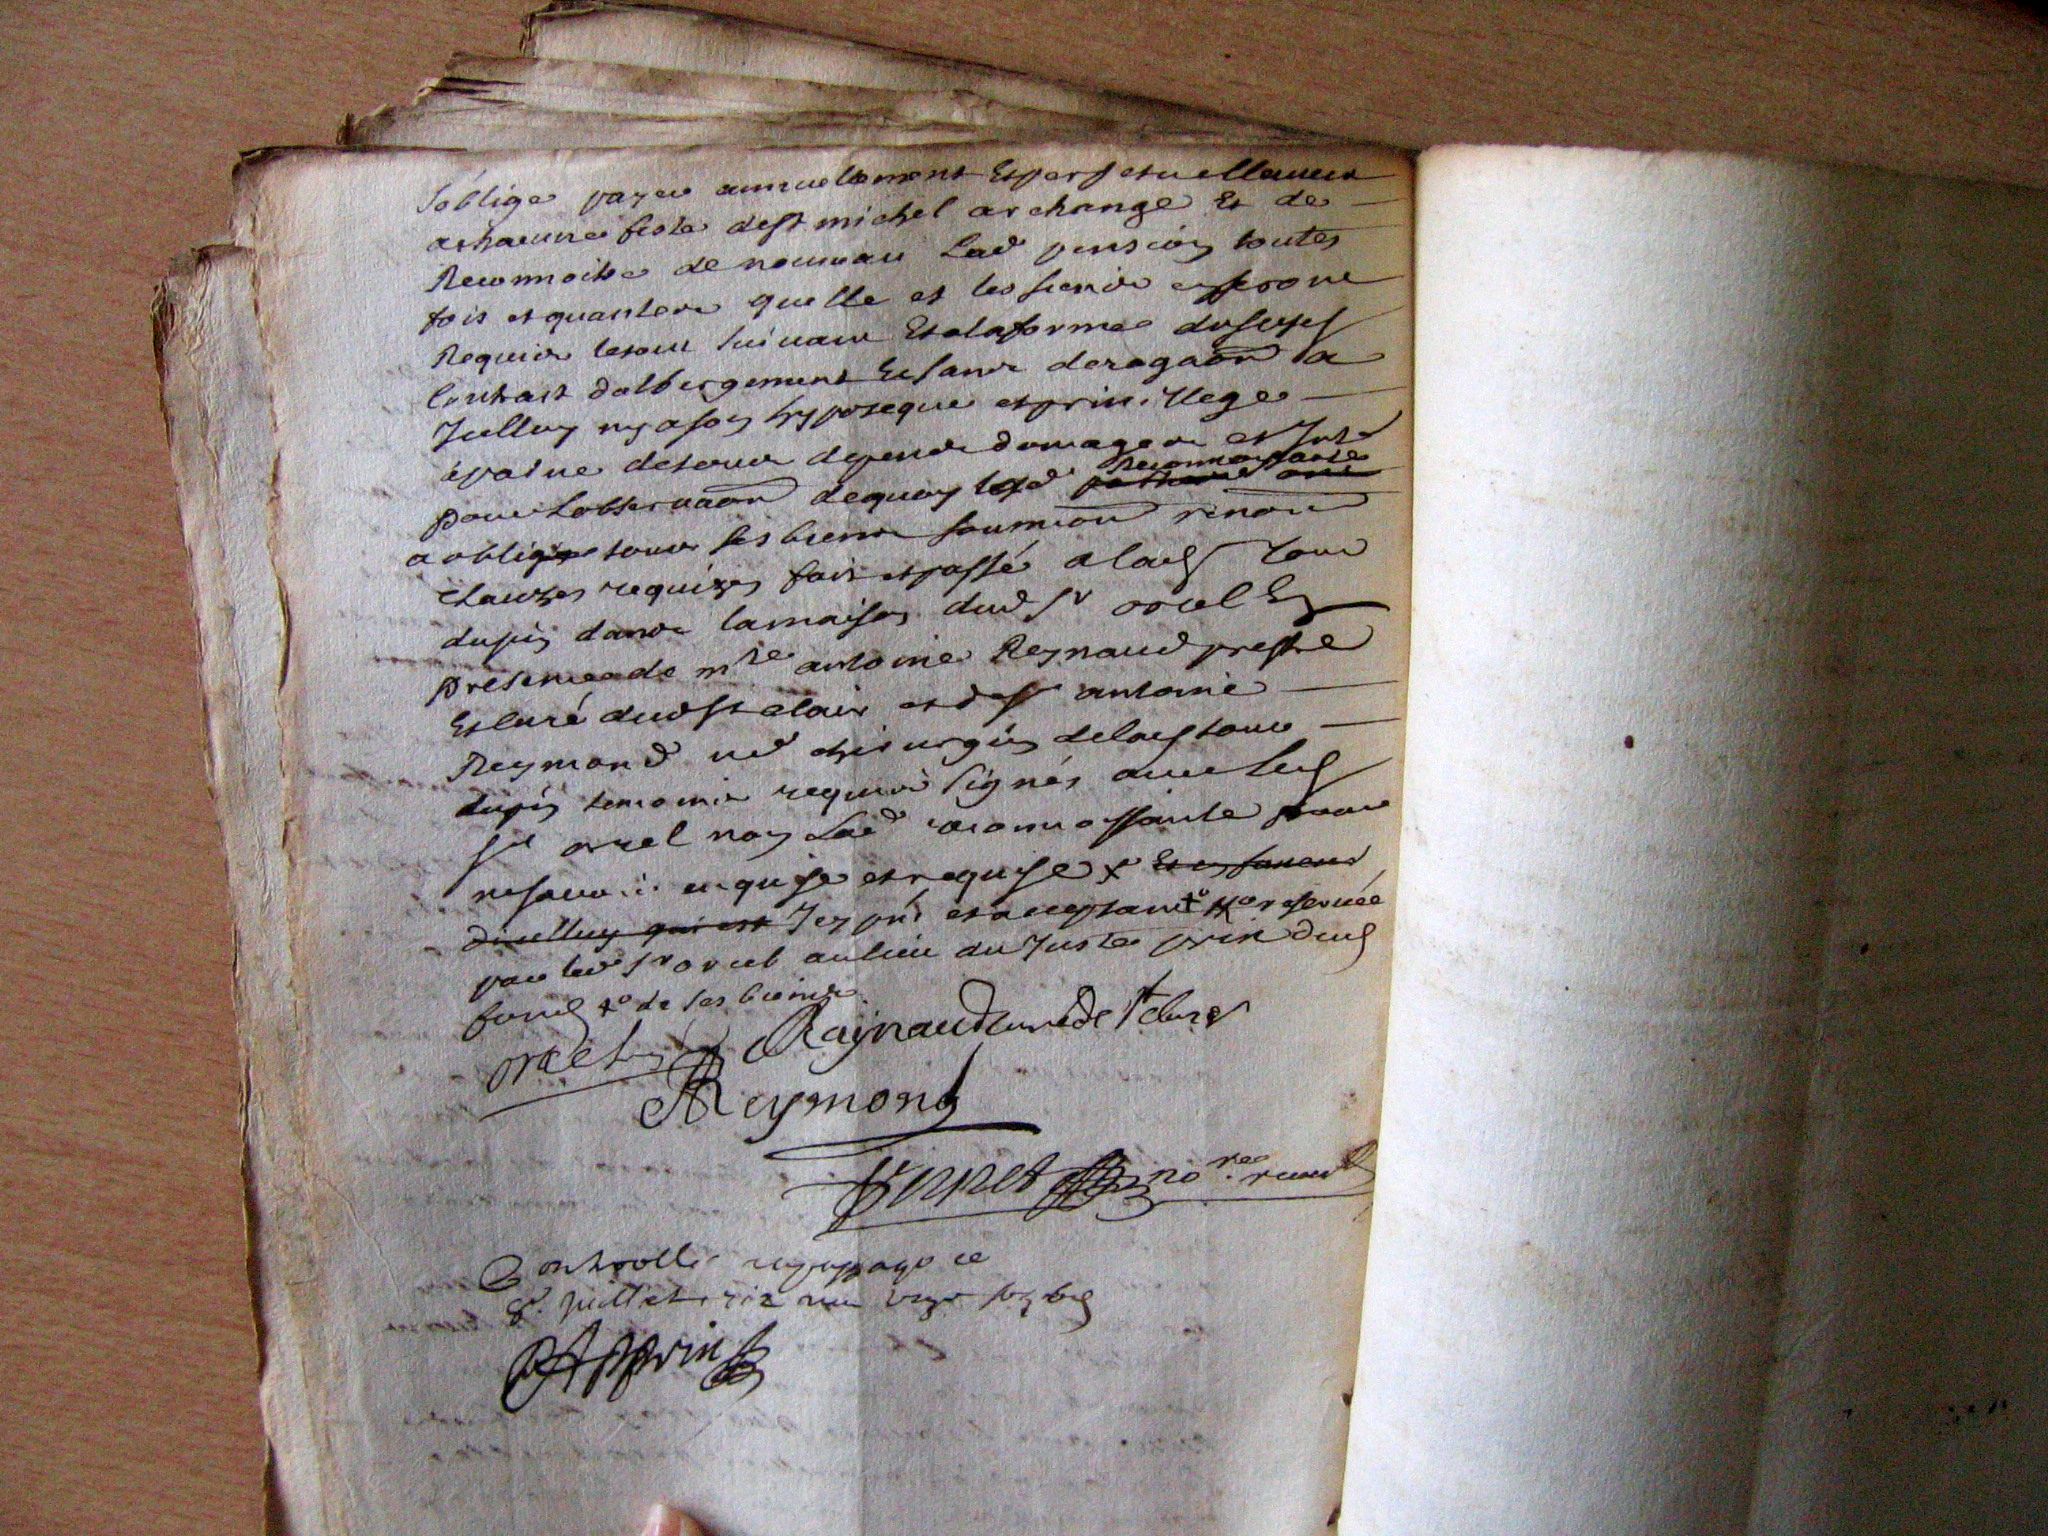 soblige payer annuellement et perpetuellement
a chacune feste de st michel archange et de
Reconnoitre de nouveau lad pension toutes
fois et quantes quelle et les siens en seront
Requis le tout suivant et a la forme du susd
Contract dalbergement et sans derogaon a
Icelluy ny a son hypoteque et privillege
a paine de tous depens domages et Inte
pour lobservaon de quoy lad reconnoissante
a oblige tous ses biens soumion renon
Clauzes requizes fait et passé a lad Tour
dupin dans la maison dud sr orcel En
presence de mre antoine Reynaud prestre
Et curé dud st clair et de sr antoine
Reymond me chirurgien de lad tour
dupin temoins requis signés avec led
sr orcel non lad reconnoissante pour
ne scavoir enquise et requise x Et en faveur
dicelluy qui est Icy pnt et acceptant xo reservée
par led sr orcel au lieu du Juste prix dud
fond xo de ses biens
orcel
Raynaud curé de st clair
Reymond
nore
Controllé
8e juillet 1712